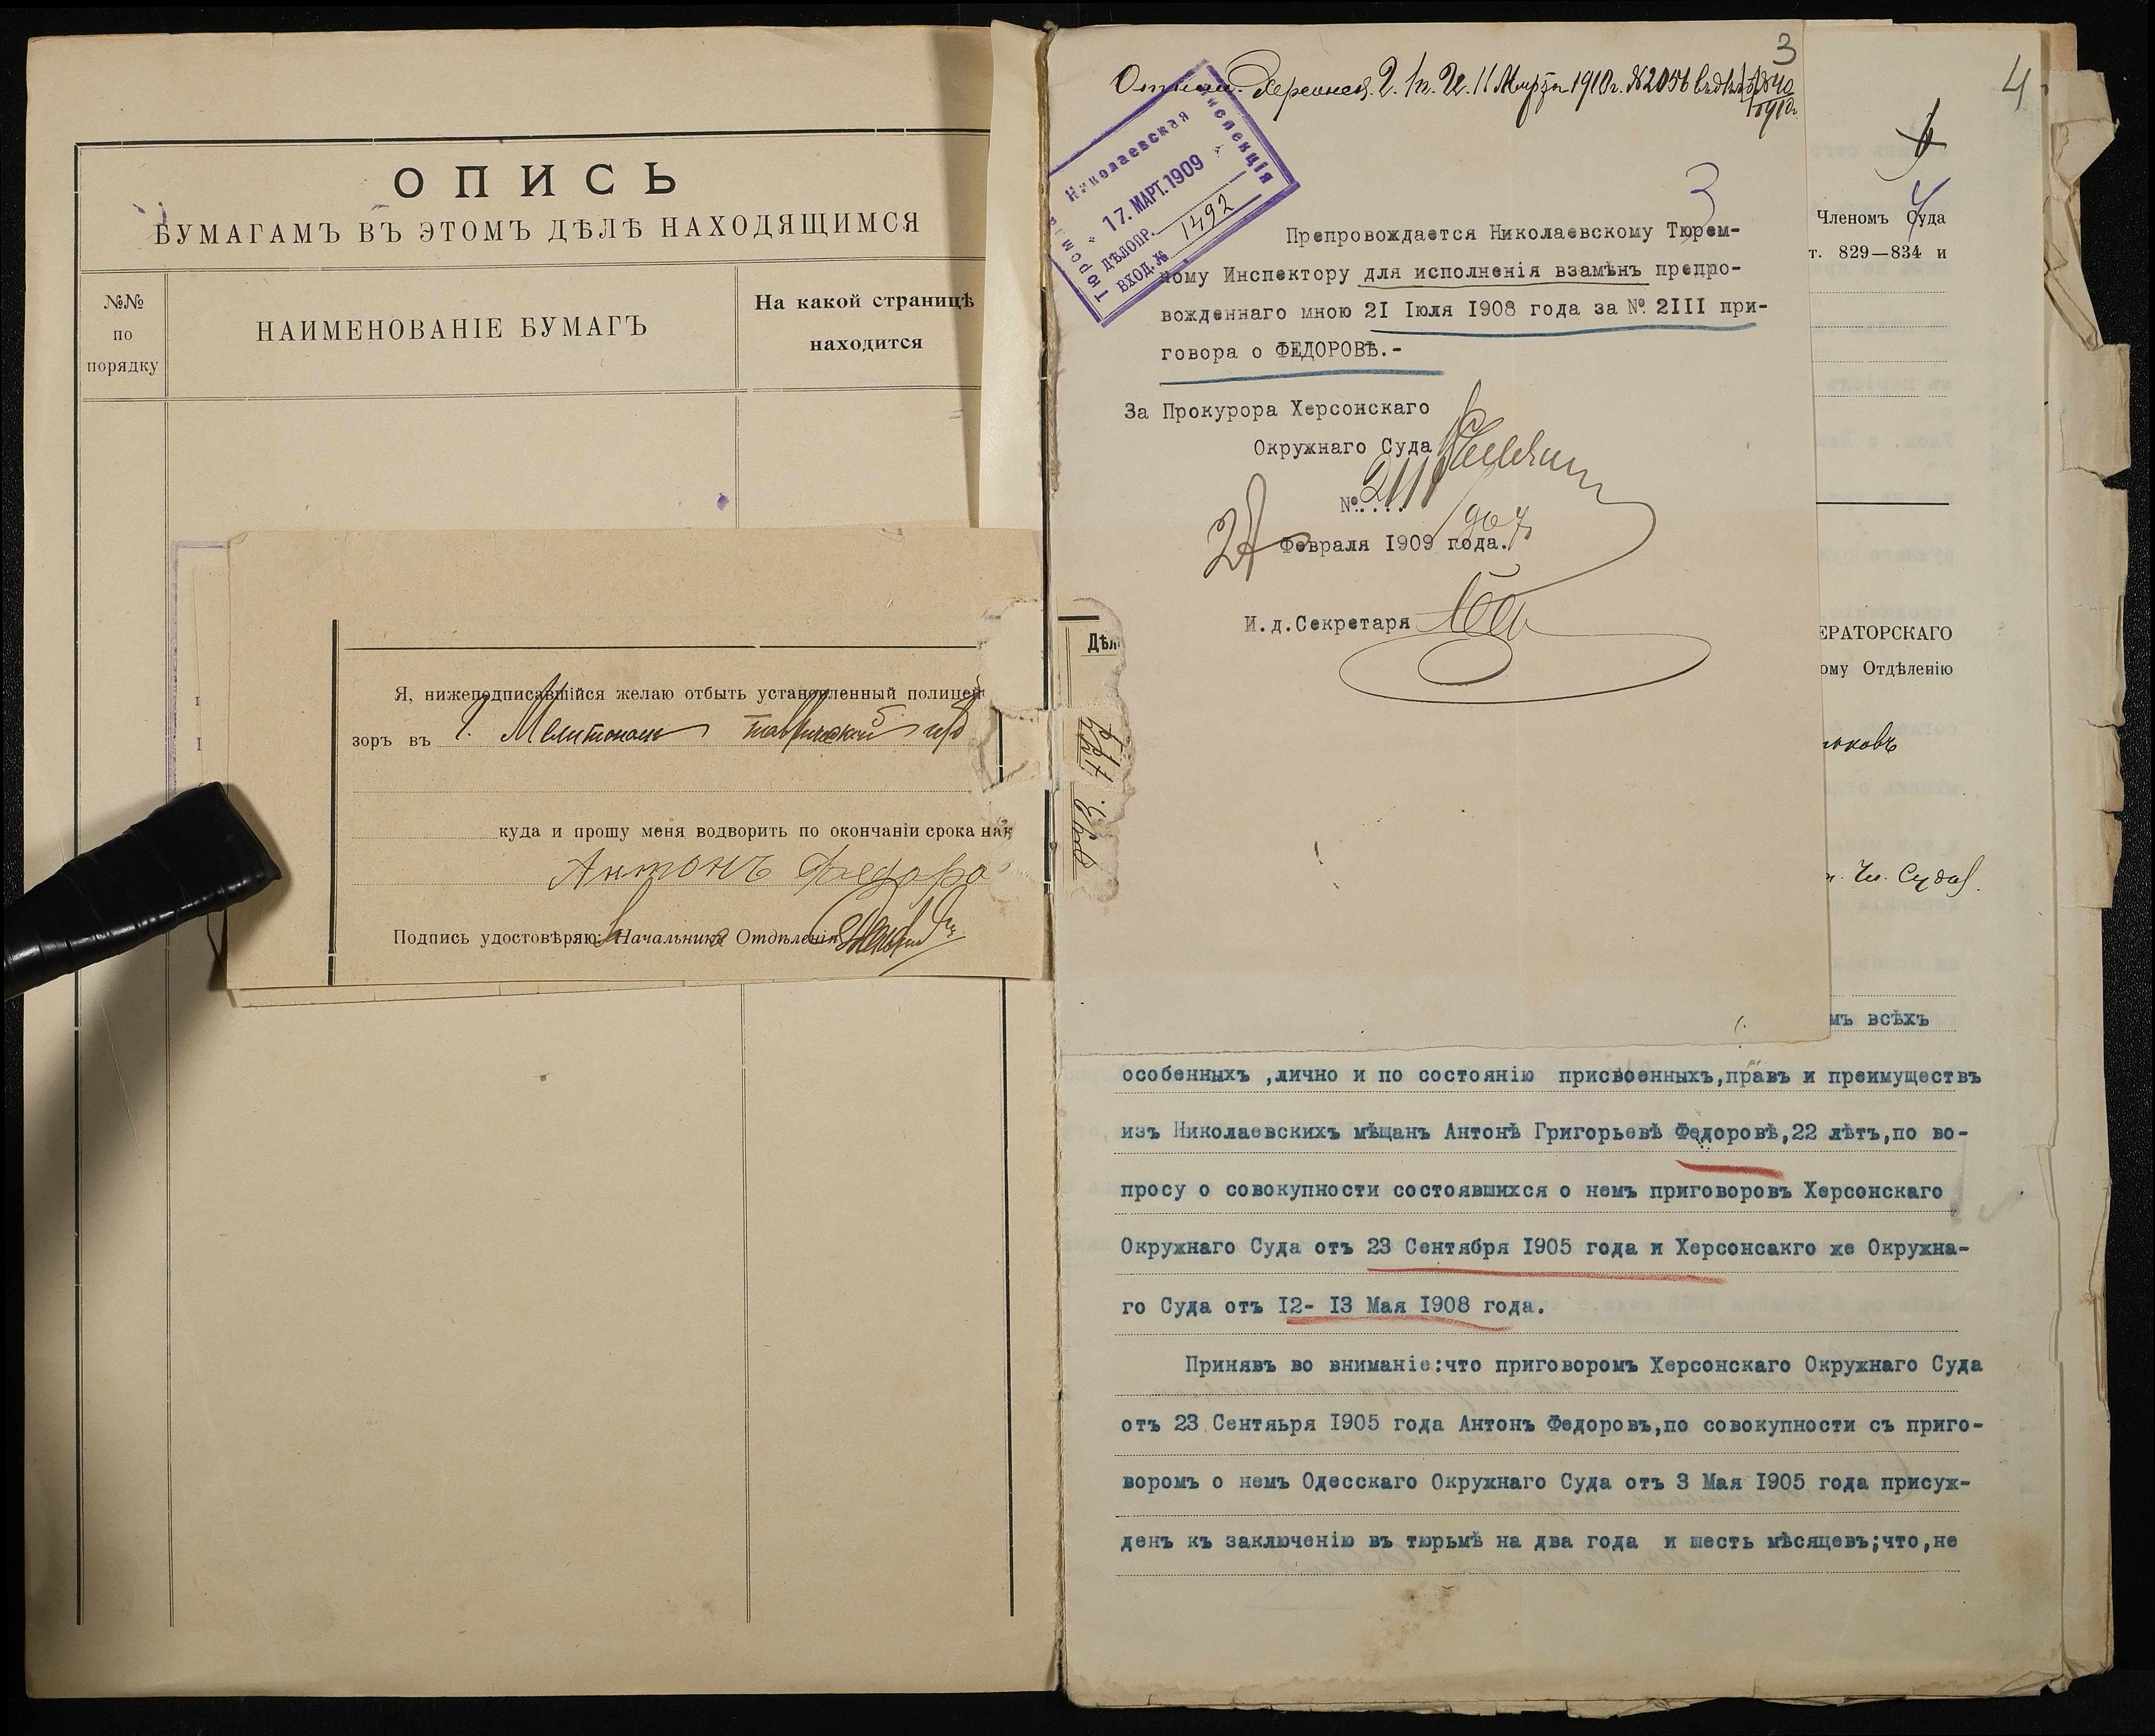 ОПИСЬ
БУМАГАМЪ ВЪ ЭТОМЪ ДѢЛѢ НАХОДЯЩИМСЯ
№№
по
порядку
НАИМЕНОВАНІЕ БУМАГЪ
На какой страницѣ
находится
Я, нижеподписавшійся желаю отбыть установленный полицей
зоръ въ г. Мелитополь Таврической губ
куда и прошу меня водворить по окончаніи срока нак
Антонъ Федоро
Подпись удостовѣряю: Начальникъ Отдѣленія
Дѣл
3
11 Марта 1910 г. № 2056
1910 г.
Николаевская
Тюрем
Инспекція
17. МАРТ. 1909
ДѢЛОПР.
ВХОД. № 1492
3
Препровождается Николаевскому Тюрем-
ному Инспектору для исполненія взамѣнъ препро-
вожденнаго мною 21 Іюля 1908 года за № 2III при-
говора о ФЕДОРОВѢ.-
За Прокурора Херсонскаго
Окружнаго Суда
№ 2111
Февраля 1909 года.
И.д.Секретаря
4
4
Членомъ Суда
т. 829—834 и
ЕРАТОРСКАГО
ому Отдѣленію
ьковъ
Чл. Суда
мъ всѣхъ
особенныхъ ,лично и по состоянію присвоенныхъ,правъ и преимуществъ
изъ Николаевскихъ мѣщанъ Антонѣ Григорьевѣ Федоровѣ,22 лѣтъ,по во-
просу о совокупности состоявшихся о немъ приговоровъ Херсонскаго
Окружнаго Суда отъ 23 Сентября 1905 года и Херсонсакго же Окружна-
го Суда отъ 12- 13 Мая 1908 года.
Принявъ во вниманіе:что приговоромъ Херсонскаго Окружнаго Суда
отъ 23 Сентяьря 1905 года Антонъ Федоровъ,по совокупности съ приго-
воромъ о немъ Одесскаго Окружнаго Суда отъ 3 Мая 1905 года присуж-
денъ къ заключенію въ тюрьмѣ на два года и шесть мѣсяцевъ;что,не